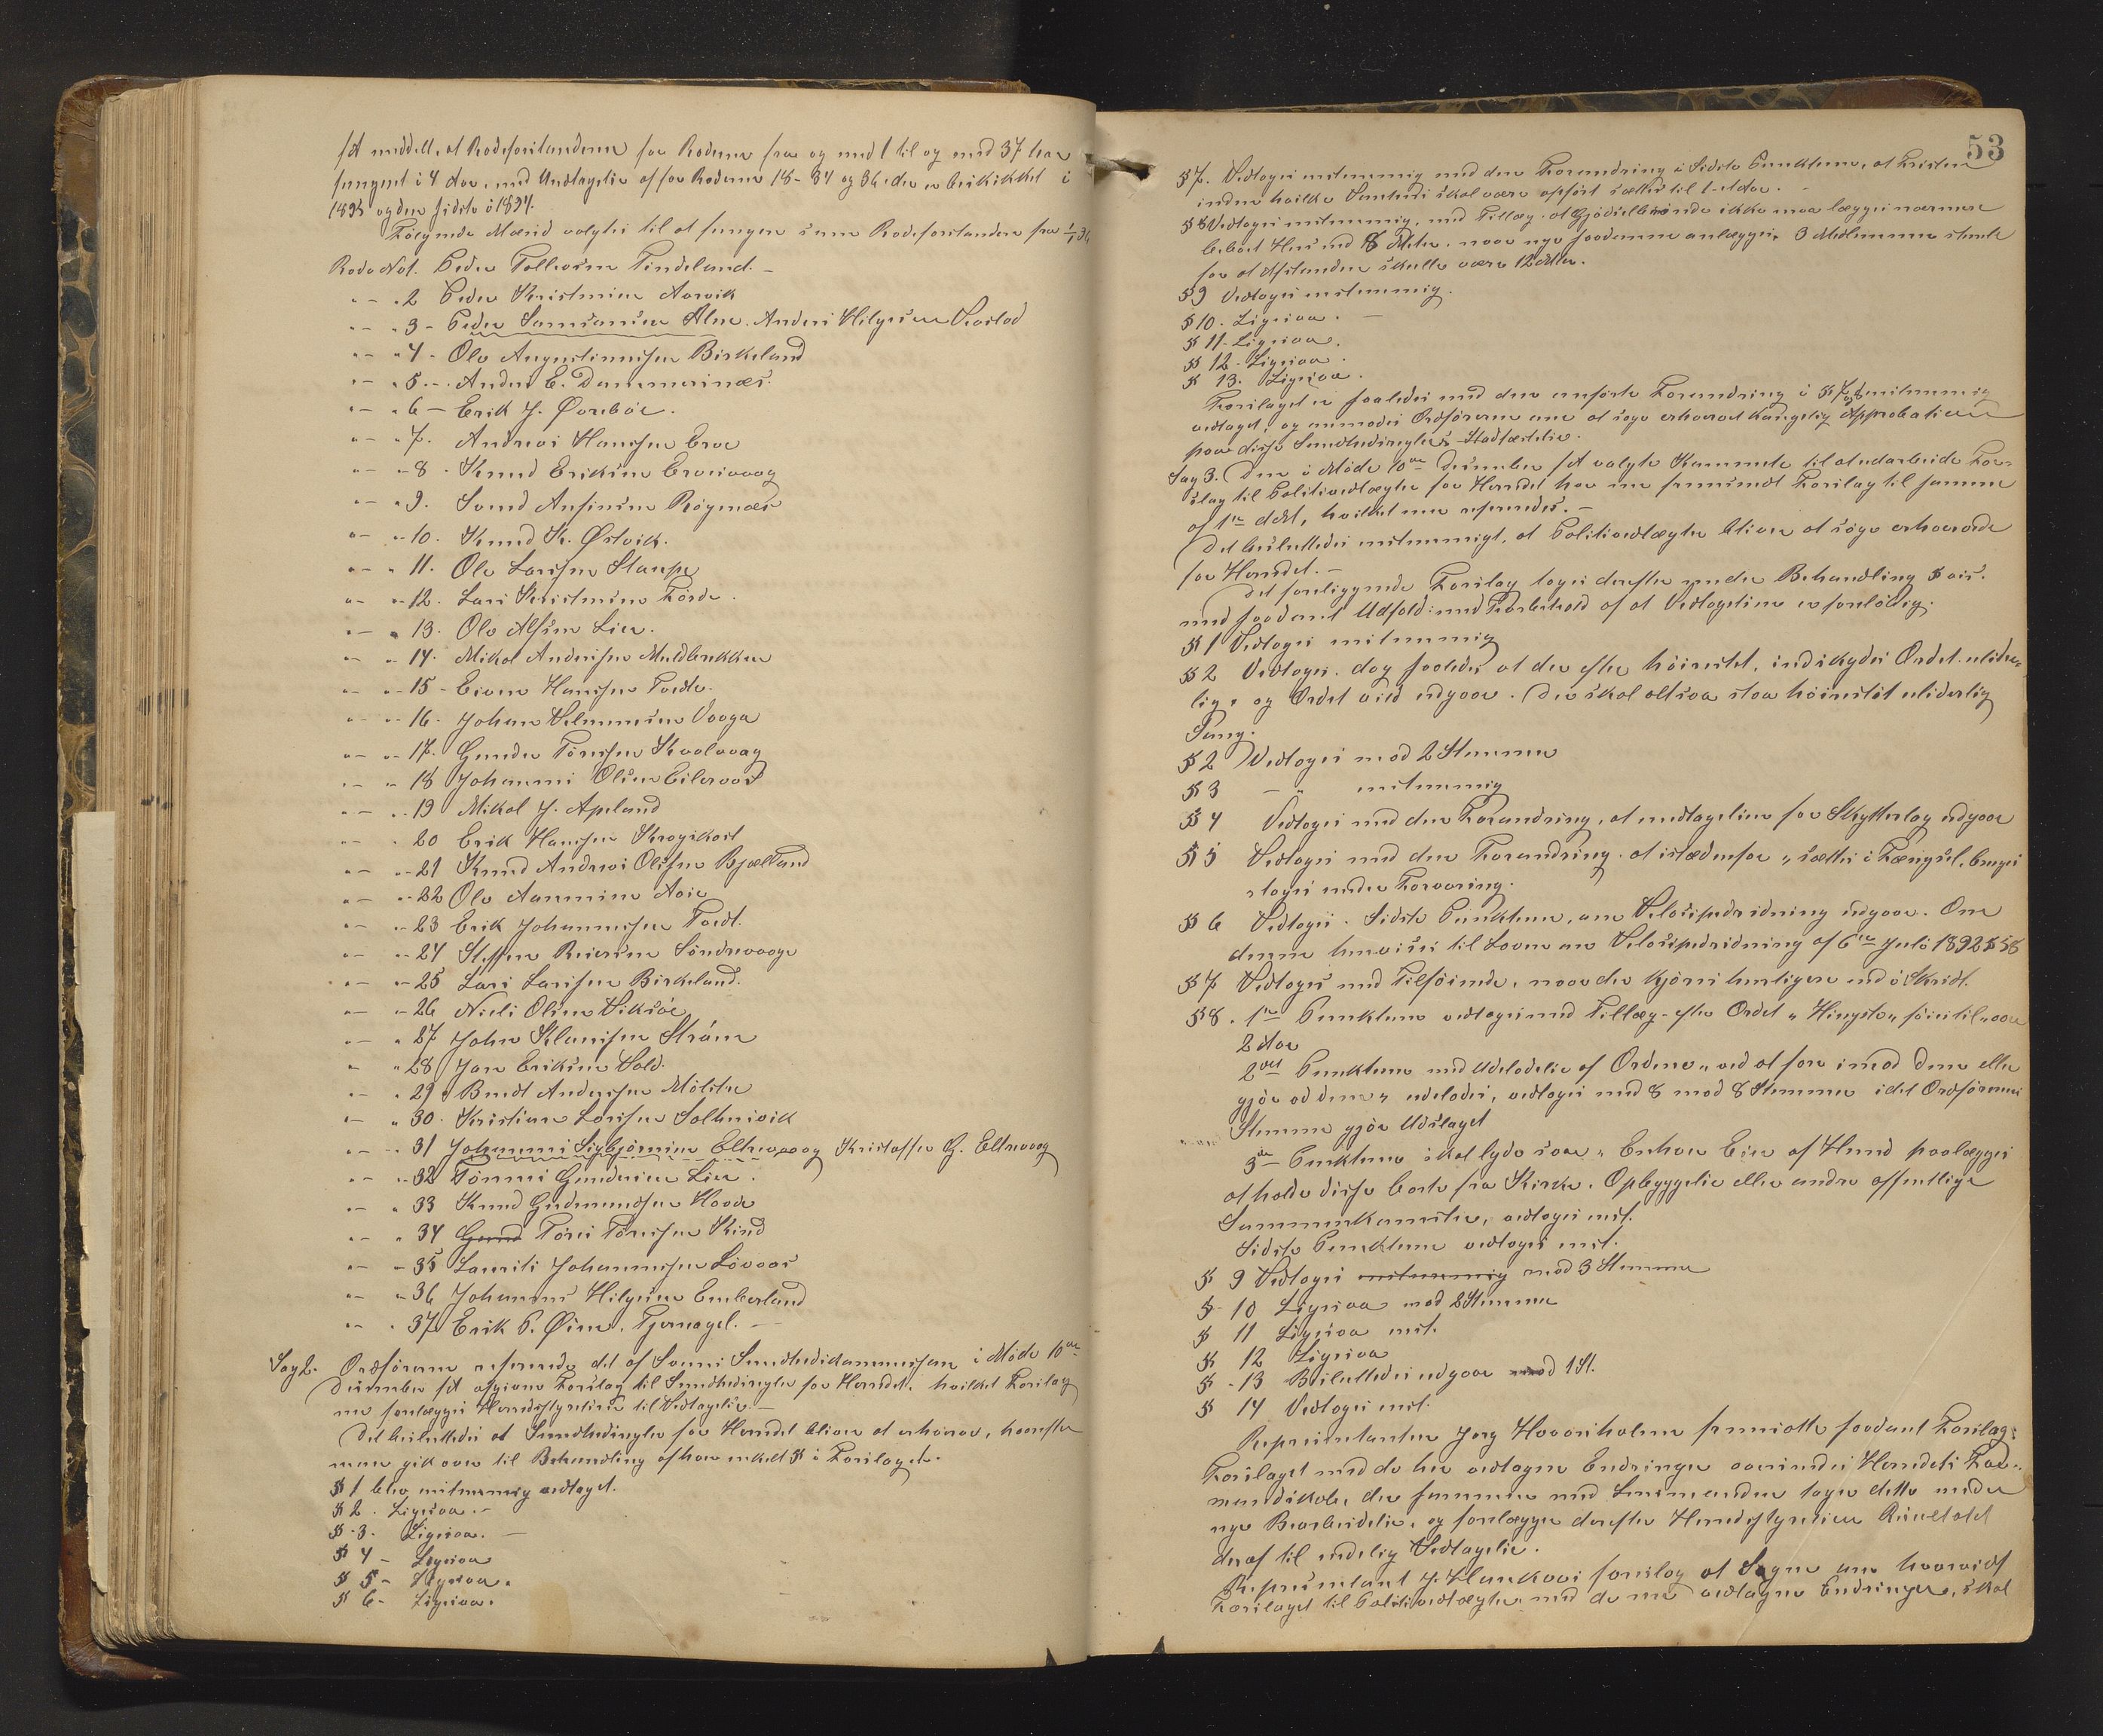 sit meddelt, at Rodeforstanderne for Roderne fra og med 1 til og med 37 har
fungeret i 4 Aar, med Undtagelse af for Roderne 18 - 34 og 36, der er beskikket i
1893 og den sidste i 1894.
Følgende Mænd valgtes til at fungere som Rodeforstandere fra 1/1
Rode No 1. Peder Tollevsen Tindeland. -
" - " 2 Peder Kristensen Aarvik
" - " 3 - Peder Samsonsen Alne. Anders Helgesen
" - " 4 - Ole Augustinussen Birkeland
" - " 5 - Anders E. Dommersnæs.
" - " 6 - Erik J. Øvrebøe.
" - " 7. Andreas Hansen Eroe
" - " 8 - Knud Eriksen
" - " 9. Svend Ansinsen Røgenæs
" - " 10. Knud K. Østvik.
" - " 11. Ole Larsen Staupe
" - " 12. Lars Kristensen Førde.
" - " 13. Ole Alfsen Lier.
" - " 14. Mikal Andersen Muldbrekken
" - " 15 - Hansen Tvedte.
" - " 16. Johan Vaaga
" - " 17. Gunder Tøresen Kvalvaag
" - " 18 Johannes Olsen Eileraas
" - " 19 Mikal J. Apeland
" - " 20 Erik Hansen
" - " 21 Knud Andreas Olsen Bjælland
" - " 22 Ole Aamunsen
" - " 23 Erik Johannessen Tvedt.
" - " 24 Steffen Reiersen Søndrevaage
" - " 25 Lars Larsen Birkeland.
" - " 26 Niels Olsen Viksøe
" - " 27 John Klausen Strøm
" - " 28 Jan Eriksen Vold.
" - " 29 Berndt Andersen Mølster
" - " 30. Kristian Larsen Saltnesvik
" - " 31 Johannes Sigbjørnsen Eltrevaag Kristoffer G. Eltrevaag
" - " 32 Tønnes Gundersen Lier.
" - " 33 Knud Gudmundsen Hovde
" - " 34 Gund Tøres Tøresen Rind
" - " 35 Laurits Johannessen Løvaas
" - " 36 Johannes Helgesen Emberland
" - " 37 Erik P. Øien. Tjernagel. -
Sag 2. Ordføreren refererede det af Sunds Sundhedskommission i Møde 10de
December sit afgivne Forslag til Sundhedsregler for Herredet, hvilket Forslag
nu forelægges Herredsstyrelsen til Vedtagelse. -
Det besluttedes at Sundhedsregler for Herredet bliver at erhverve, hvorefter
man gik over til Behandling af hver enkelt § i Forslaget.
§ 1 blev enstemmig vedtaget.
§ 2. Ligesaa. -
§ 3. Ligesaa. -
§ 4 - Ligesaa
§ 5 - Ligesaa.
§ 6 - Ligesaa.
53
§ 7. Vedtoges enstemmig med den Forandring i Sidste Punktum, at Fristen
inden hvilke Samtidi skal være opført sættes til 1 et Aar. -
§ 8 Vedtoges enstemmig, med Tillæg at Gjødselbinde ikke maa lægges nærmere
beboet Hus end 8 Meter. naar nye saadanne anlægges. 3 Medlemmer stemte
for at Afstanden skulle være 12 Mtr.
§ 9 Vedtoges enstemmig.
§ 10. Ligesaa. -
§ 11. Ligesaa.
§ 12 - Ligesaa.
§ 13. Ligesaa.
Forslaget er saaledes med den anførte Forandring i § 7 og 8 enstemmig
vedtaget, og anmodes Ordføreren om at søge erhvervet kongelig Approbation
paa disse Sundhedsreglers Stadfæstelse.
Sag 3. Den i Møde 10de December sit valgte Kommite til at udarbeide For-
slag til Politivedtægter for Herredet har nu fremsendt Forslag til samme
af 1ste dM, hvilket nu refereredes. -
Det besluttedes enstemmigt, at Politivedtægter bliver at søge erhvervede
for Herredet. -
Det foreliggende Forslag toges derefter under Behandling § vis.
med saadant Udfald: med Forbehold af at Vedtagelsen er foreløbig.
§ 1 Vedtoges enstemmig
§ 2 Vedtoges. dog saaledes at der efter høirøstet, indskydes Ordet usøme-
lig, og Ordet ved udgaar. Der skal altsaa staa høirøstet usiderlig
Sang.
§ 2 Vedtoges mod 2 Stemmer
§ 3 - " enstemmig
§ 4 Vedtoges med den Forandring, at undtagelsen for Skytterlag udgaar
§ 5 Vedtoges med den Forandring. at istedenfor "sættes i Fængsel, bruges
"toges under Forvaring.
§ 6 Vedtoges. Sidste Punktum, om Velocipedridning udgaar. Om
denne henvises til Loven om Velocipedridning af 6te Juli 1892 § 58
§ 7 Vedtoges med Tilføiende, naar der kjøres hurtigere end i Skridt.
§ 8. 1ste Punktum vedtoges med Tillæg - efter Ordet "Hingste" føies til "over
2 Aar
2det Punktum med Udeladelse af Ordene "ved at fare imod dem eller
gjø ad dem" udelades, vedtoges med 8 mod 8 Stemmer idet Ordførerens
Stemme gjør Udslaget
3die Punktum skal lyde saa "Enhver Eier af Hund paalægges
at holde disse borte fra Kirke, Opbyggelse eller andre offentlige
Sammenkomster, vedtoges enst.
Sidste Punktum vedtoges enst.
§ 9 Vedtoges enstemmig mod 3 Stemmer
§ 10 Ligesaa mod 2 Stemmer
§ 11 Ligesaa enst.
§ 12 Ligesaa
§ 13 Besluttedes udgaar mod 1 St.
§ 14 Vedtoges enst.
Repræsentanten Jorg Hovorsholm fremsatte saadant Forslag:
Forslaget med de her vedtagne Endringer oversendes Herredets For-
mandskab, der sammen med Lensmanden tager dette under
nye Bearbeidelse, og forelægger derefter Herredsstyrelsen Resultatet
deraf til endelig Vedtagelse.
Repræsentant J. Haukaas foreslog at Sagen om hvorvidt
Forslaget til Politivedtægter, med de nu vedtagne Endringer, skal